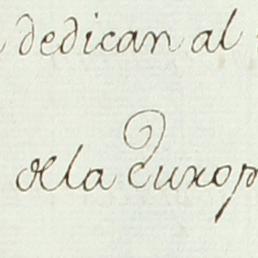 dedican al
de la Europ